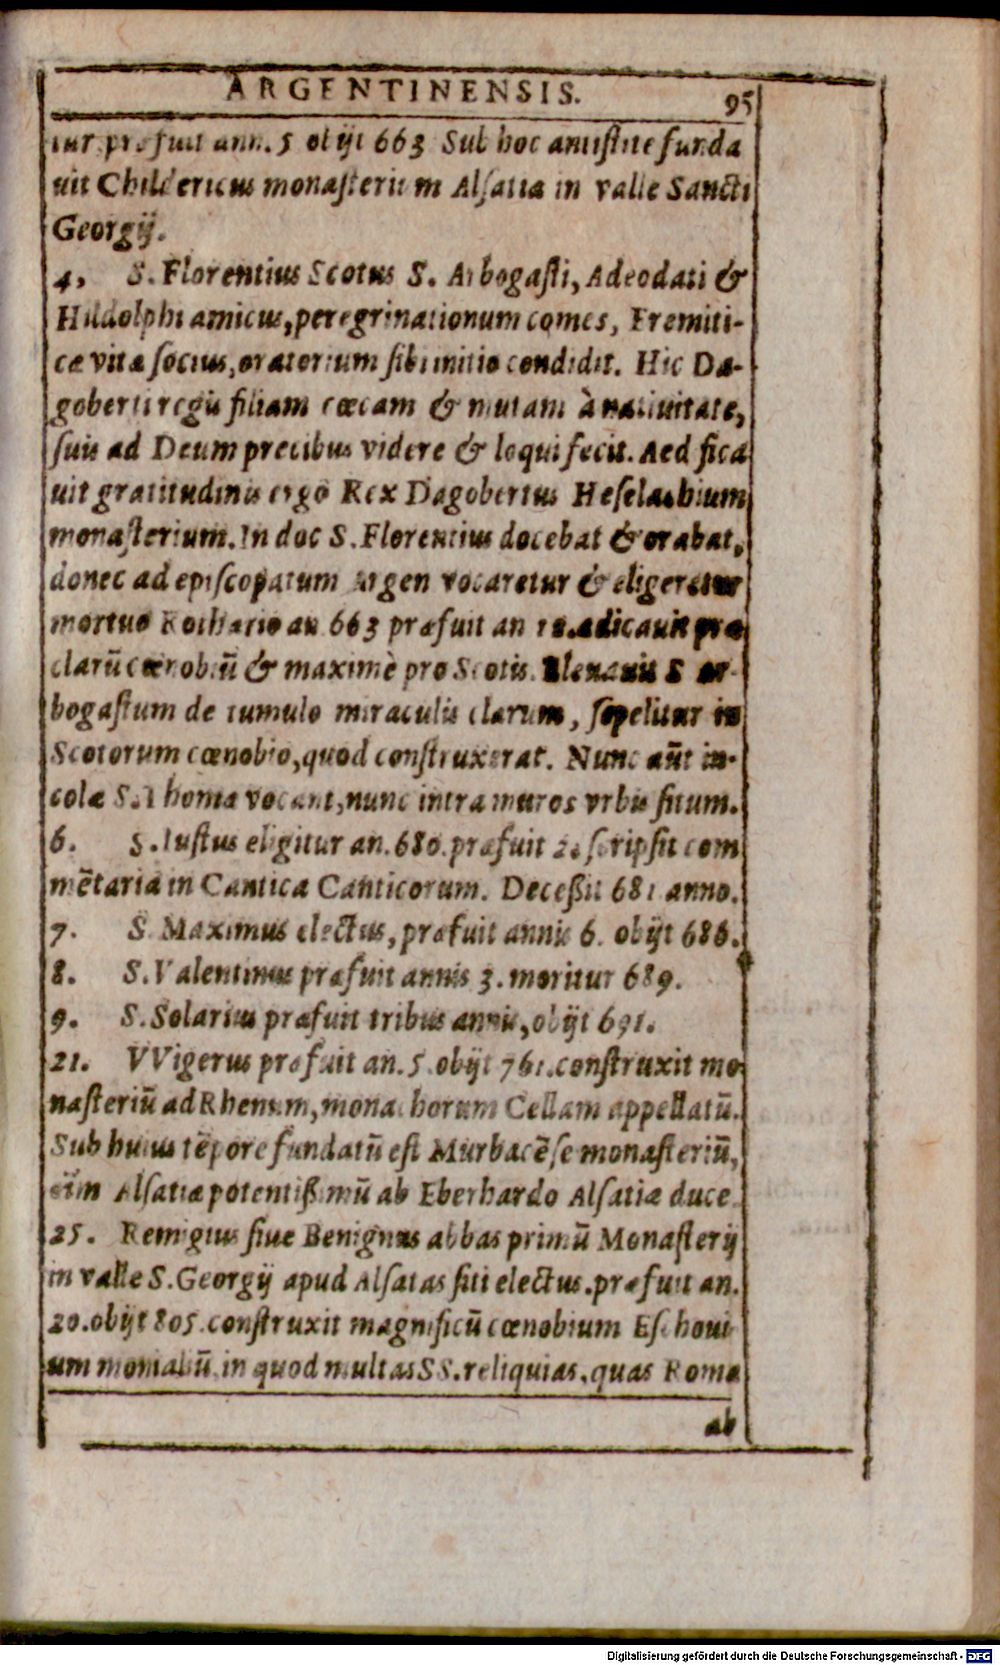 ARGENTINENSIS. 95
tur præfuit ann. 5 obijt 663 Sub hoc antistite funda
uit Childericus monasterium Alsatia in valle Sancti
Georgij.
4, S. Florentius Scotus S. Arbogasti, Adeodati &
Hildolphi amicus, peregrinationum comes, Eremiti-
cæ vitæ socius, oratorium sibi initio condidit. Hic Da-
goberti regis filiam cœcam & mutam à natiuitate,
suis ad Deum precibus videre & loqui fecit. Aedifica
uit gratitudinis ergo Rex Dagobertus Heselachium
monasterium. In doc S. Florentius docebat & orabat,
donec ad episcopatum Argen vocaretur & eligeretur
mortuo Rothario an. 663 præfuit an præ
clarū cœnobiū & maximè pro Scotis. Eleuauit S Ar-
bogastum de tumulo miraculis clarum, sepelitur in
Scotorum cœnobio, quod construxerat. Nunc aūt in-
colæ S. Thomæ vocant, nunc intra muros vrbis situm.
6. S. Iustus eligitur an. 680. præfuit scripsit com
mētaria in Cantica Canticorum. Deceßit 681 anno.
7. S. Maximus electus, præfuit annis 6. obijt 686.
8. S. Valentinus præfuit annis 3. moritur 689.
9. S. Solarius præfuit tribus annis, obijt 691.
21. VVigerus præfuit an. 5. obijt 761. construxit mo
nasteriū ad Rhenum, monachorum Cellam appellatū.
Sub huius tēpore fundatū est Murbacēse monasteriū,
Alsatiæ potentißimū ab Eberhardo Alsatiæ duce
25. Remigius siue Benignus abbas primū Monasterij
in valle S. Georgij apud Alsatas siti electus. præfuit an.
20. obijt 805. construxit magnificū cœnobium Eschoui
um monialiū, in quod multas SS. reliquias, quas Roma
ab
Digitalisierung gefördert durch die Deutsche Forschungsgemeinschaft - DFG